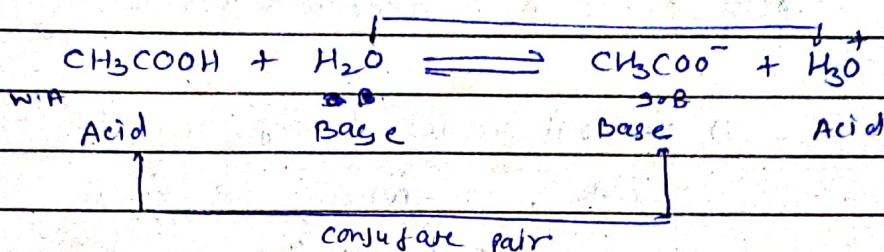 CH₃COOH + H₂O ⇌ CH₃COO⁻ + H₃O⁺
W.A B S.B
Acid Base Base Acid
conjugate pair